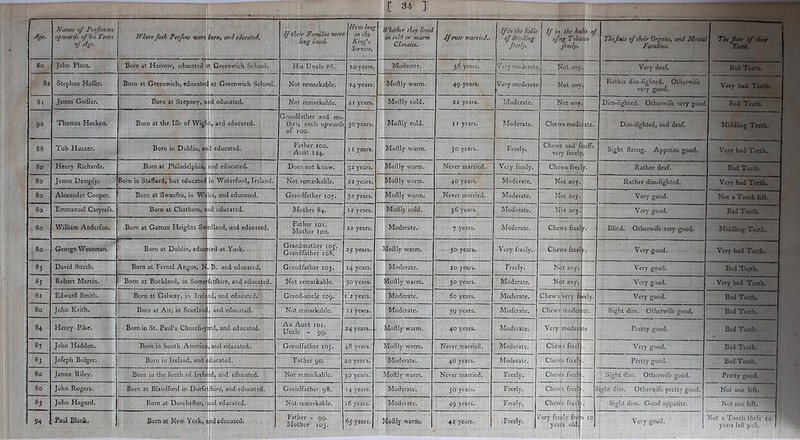 [ 34 ]
Age. | Names of Pensioners upwards of 80 Years of Age. | Where such Persons were born, and educated. | If their Families were long lived. | How long in the King's Service. | Whether they lived in cold or warm Climates. | If ever married. | If in the habit of drinking freely. | If in the habit of using Tobacco freely. | The state of their Organs, and Mental Faculties. | The state of their Teeth.
80 | John Plant. | Born at Harrow, educated at Greenwich School. | His Uncle 86. | 20 years. | Moderate. | 36 years. | Very moderate. | Not any. | Very deaf. | Bad Teeth.
82 | Stephen Haſſer. | Born at Greenwich, educated at Greenwich School. | Not remarkable. | 24 years. | Moſtly warm. | 49 years. | Very moderate. | Not any. | Rather dim-ſighted. Otherwiſe very good. | Very bad Teeth.
81 | James Godler. | Born at Stepney, and educated. | Not remarkable. | 21 years. | Moſtly cold. | 22 years. | Moderate. | Not any. | Dim-ſighted. Otherwiſe very good | Bad Teeth.
90 | Thomas Hacken. | Born at the Iſle of Wight, and educated. | Grandfather and mother, each upwards of 100. | 30 years. | Moſtly cold. | 11 years. | Moderate. | Chews moderate. | Dim-ſighted, and deaf. | Middling Teeth.
88 | Tob Hunter. | Born in Dublin, and educated. | Father 100. Aunt 124. | 11 years. | Moſtly warm. | 50 years. | Freely. | Chews and ſnuffs very freely. | Sight ſtrong. Appetite good. | Very bad Teeth.
80 | Henry Richards. | Born at Philadelphia, and educated. | Does not know. | 32 years. | Moſtly warm. | Never married. | Very freely. | Chews freely. | Rather deaf. | Bad Teeth.
80 | James Dempſy. | Born in Stafford, but educated in Waterford, Ireland. | Not remarkable. | 22 years. | Moſtly warm. | 40 years. | Moderate. | Not any. | Rather dim-ſighted. | Very bad Teeth.
80 | Alexander Cooper. | Born at Swanſea, in Wales, and educated. | Grandfather 107. | 32 years. | Moſtly warm. | Never married. | Moderate. | Not any. | Very good. | Not a Tooth left.
80 | Emmanuel Caryreſs. | Born at Chatham, and educated. | Mother 84. | 12 years. | Moſtly cold. | 36 years. | Moderate. | Not any. | Very good. | Bad Teeth.
80 | William Anderſon. | Born at Gatton Heights Swefland, and educated. | Father 101. Mother 100. | 22 years. | Moderate. | 7 years. | Moderate. | Chews freely. | Blind. Otherwiſe very good. | Middling Teeth.
80 | George Weneman. | Born at Dublin, educated at York. | Grandmother 105. Grandfather 108. | 25 years. | Moſtly warm. | 50 years. | Very freely. | Chews freely. | Very good. | Very bad Teeth.
83 | David Smith. | Born at Fernel Angus, N. B. and educated. | Grandfather 103. | 14 years. | Moderate. | 20 years. | Freely. | Not any. | Very good. | Bad Teeth.
85 | Robert Martin. | Born at Buckland, in Somerſetſhire, and educated. | Not remarkable. | 30 years. | Moſtly warm. | 30 years. | Moderate. | Not any. | Very good. | Very bad Teeth.
82 | Edward Smith. | Born at Galway, in Ireland, and educated. | Grand-uncle 109. | 12 years. | Moderate. | 60 years. | Moderate. | Chews very freely. | Very good. | Bad Teeth.
80 | John Keith. | Born at Air, in Scotland, and educated. | Not remarkable. | 11 years. | Moderate. | 39 years. | Moderate. | Chews moderate. | Sight dim. Otherwiſe good. | Bad Teeth.
84 | Henry Pike. | Born in St. Paul's Church-yard, and educated. | An Aunt 101. Uncle - 99. | 24 years. | Moſtly warm. | 40 years. | Moderate. | Very moderate | Pretty good. | Bad Teeth.
87 | John Haddon. | Born in South America, and educated. | Grandfather 105. | 48 years. | Moſtly warm. | Never married. | Moderate. | Chews freely. | Very good. | Bad Teeth.
83 | Joſeph Bulger. | Born in Ireland, and educated. | Father 90. | 20 years. | Moderate. | 40 years. | Moderate. | Chews freely. | Pretty good. | Bad Teeth.
80 | James Riley. | Born in the ſouth of Ireland, and educated. | Not remarkable. | 30 years. | Moſtly warm. | Never married. | Freely. | Chews freely. | Sight dim. Otherwiſe good. | Pretty good.
80 | John Rogers. | Born at Blandford in Dorſetſhire, and educated. | Grandfather 98. | 14 years. | Moderate. | 50 years. | Freely. | Chews freely. | Sight dim. Otherwiſe pretty good. | Not one left.
83 | John Hagard. | Born at Dorcheſter, and educated. | Not remarkable. | 16 years. | Moderate. | 49 years. | Freely. | Chews freely. | Sight dim. Good appetite. | Not one left.
94 | Paul Blank. | Born at New York, and educated. | Father - 99. Mother 105. | 65 years. | Moſtly warm. | 42 years. | Freely. | Very freely from 10 years old. | Very good. | Not a Tooth theſe 10 years laſt paſt.